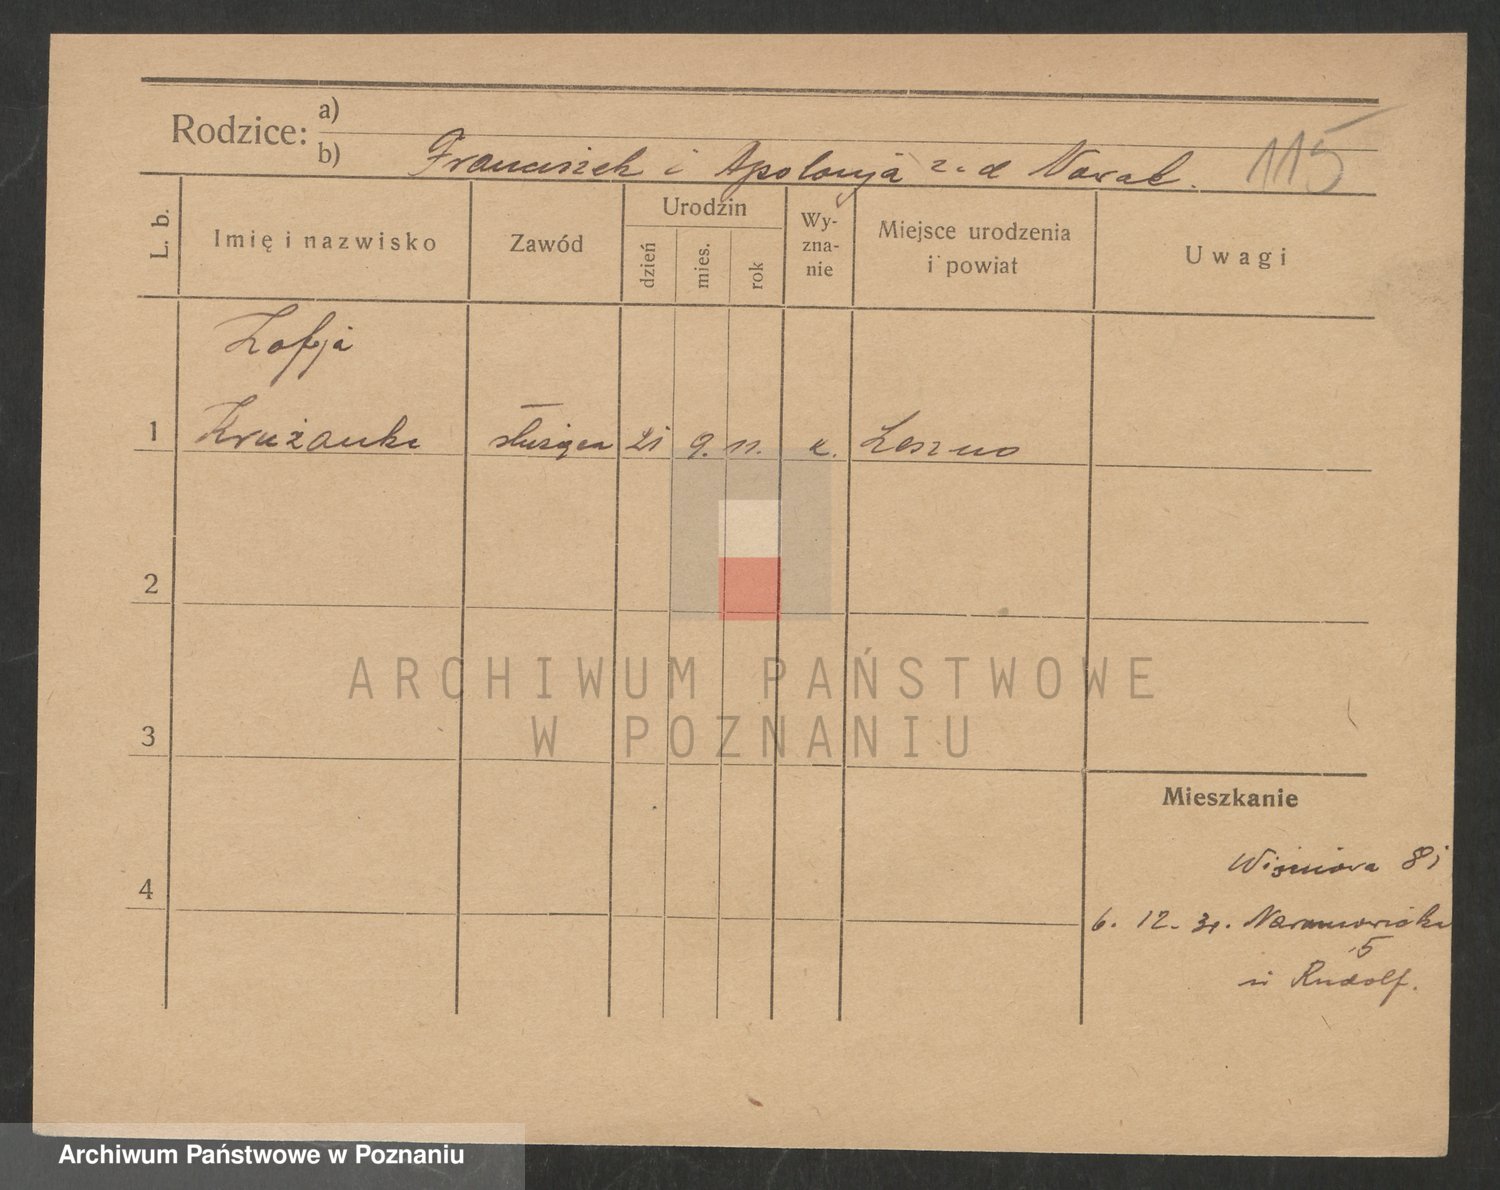 115
Rodzice: a)
b) Franciszek i Apolonja z. d Nowak.
L. b.
Imię i nazwisko
Zawód
Urodzin
dzień
mies.
rok
Wy-
zna-
nie
Miejsce urodzenia
i powiat
Uwagi
Zofja
1 Krużanka służąca 21 9. 11. k. Leszno
2
3
4
Mieszkanie
6. 12. 31.
5
Rudolf.
ARCHIWUM PAŃSTWOWE
W POZNANIU
Archiwum Państwowe w Poznaniu